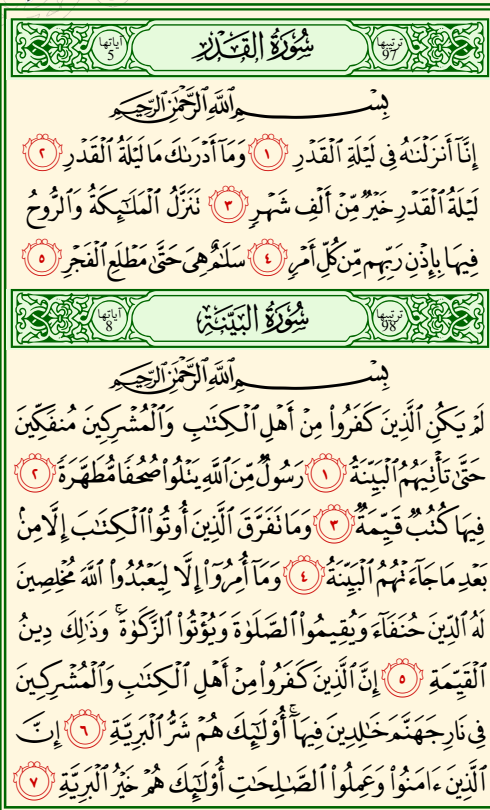 آياتها 5 سُورَةُ القَدۡرِ ترتيبها 97
بِسۡمِ ٱللَّهِ ٱلرَّحۡمَٰنِ ٱلرَّحِيمِ
إِنَّآ أَنزَلۡنَٰهُ فِي لَيۡلَةِ ٱلۡقَدۡرِ ١ وَمَآ أَدۡرَىٰكَ مَا لَيۡلَةُ ٱلۡقَدۡرِ ٢
لَيۡلَةُ ٱلۡقَدۡرِ خَيۡرٞ مِّنۡ أَلۡفِ شَهۡرٖ ٣ تَنَزَّلُ ٱلۡمَلَٰٓئِكَةُ وَٱلرُّوحُ
فِيهَا بِإِذۡنِ رَبِّهِم مِّن كُلِّ أَمۡرٖ ٤ سَلَٰمٌ هِيَ حَتَّىٰ مَطۡلَعِ ٱلۡفَجۡرِ ٥
آياتها 8 سُورَةُ البَيِّنَةِ ترتيبها 98
بِسۡمِ ٱللَّهِ ٱلرَّحۡمَٰنِ ٱلرَّحِيمِ
لَمۡ يَكُنِ ٱلَّذِينَ كَفَرُواْ مِنۡ أَهۡلِ ٱلۡكِتَٰبِ وَٱلۡمُشۡرِكِينَ مُنفَكِّينَ
حَتَّىٰ تَأۡتِيَهُمُ ٱلۡبَيِّنَةُ ١ رَسُولٞ مِّنَ ٱللَّهِ يَتۡلُواْ صُحُفٗا مُّطَهَّرَةٗ ٢
فِيهَا كُتُبٞ قَيِّمَةٞ ٣ وَمَا تَفَرَّقَ ٱلَّذِينَ أُوتُواْ ٱلۡكِتَٰبَ إِلَّا مِنۢ
بَعۡدِ مَا جَآءَتۡهُمُ ٱلۡبَيِّنَةُ ٤ وَمَآ أُمِرُوٓاْ إِلَّا لِيَعۡبُدُواْ ٱللَّهَ مُخۡلِصِينَ
لَهُ ٱلدِّينَ حُنَفَآءَ وَيُقِيمُواْ ٱلصَّلَوٰةَ وَيُؤۡتُواْ ٱلزَّكَوٰةَۚ وَذَٰلِكَ دِينُ
ٱلۡقَيِّمَةِ ٥ إِنَّ ٱلَّذِينَ كَفَرُواْ مِنۡ أَهۡلِ ٱلۡكِتَٰبِ وَٱلۡمُشۡرِكِينَ
فِي نَارِ جَهَنَّمَ خَٰلِدِينَ فِيهَآۚ أُوْلَٰٓئِكَ هُمۡ شَرُّ ٱلۡبَرِيَّةِ ٦ إِنَّ
ٱلَّذِينَ ءَامَنُواْ وَعَمِلُواْ ٱلصَّٰلِحَٰتِ أُوْلَٰٓئِكَ هُمۡ خَيۡرُ ٱلۡبَرِيَّةِ ٧